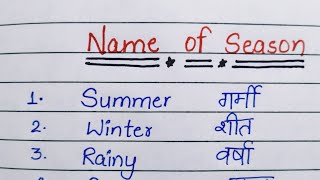 Name of Season
1. Summer गर्मी
2. Winter शीत
3. Rainy वर्षा